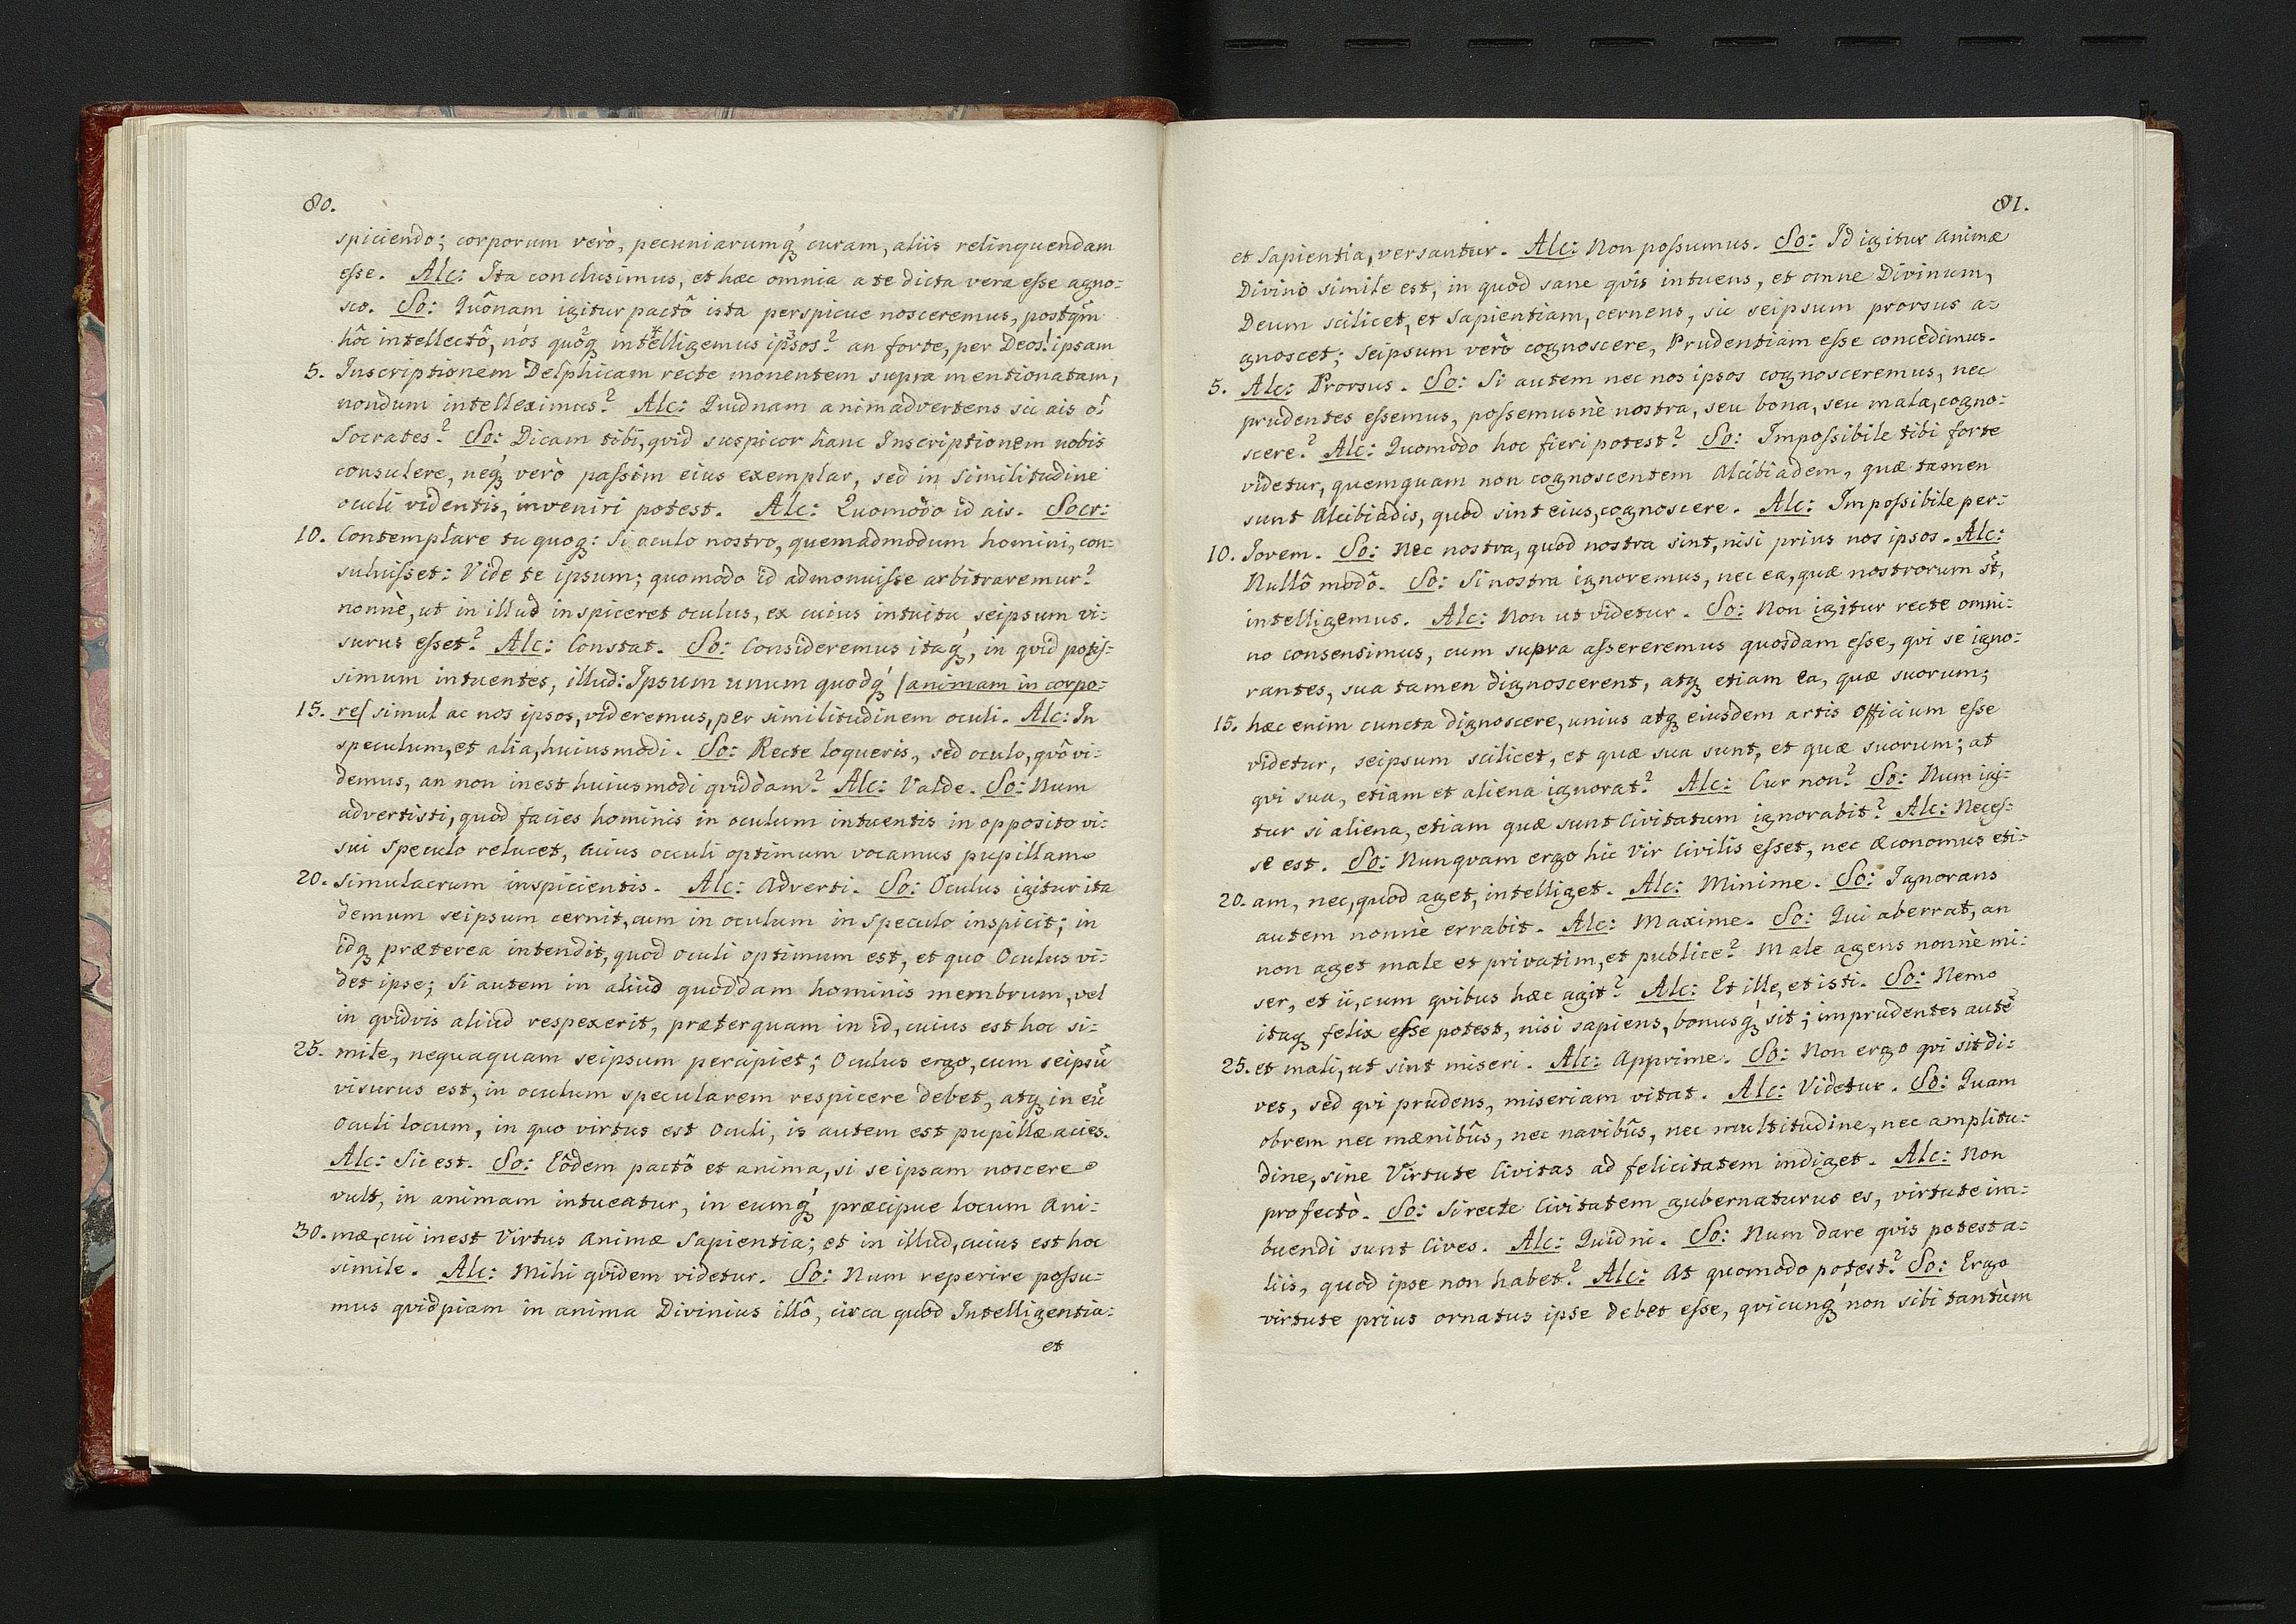 80.
spiciendo; corporum verò, pecuniarumq́ꝫ curam, aliis relinquendam
eſse. Alc: Ita conclusimus, et hæc omnia a te dicta vera eſse agno:
sco. So: Quônam igitur pactô ista perspicue nosceremus, postq̃m
hôc intellectô, nós quoqꝫ intelligemus ipsos? an forte, per Deos! ipsam
5. Inscriptionem Delphicam recte monentem supra mentionatam,
nondum intelleximus? Alc: Quidnam animadvertens sic ais o!
Socrates? So: Dicam tibi, qvid suspicor hanc Inscriptionem nobis
consulere, neq́ꝫ verò paſsim eius exemplar, sed in similitudine
oculi videntis, inveniri potest. Alc: Quomodo id ais. Socr:
10. Contemplare tu quoqꝫ: Si oculo nostro, quemadmodum homini, con:
suluiſset: Vide te ipsum; quomodo id admonuiſse arbitraremur?
nonnè, ut in illud inspiceret oculus, ex cuius intuitu, seipsum vi:
surus eſset? Alc: Constat. So: Consideremus itaq́ꝫ, in qvid potiſ:
simum intuentes, illud: Ipsum unum quodq́ꝫ /animam in corpo:
15. re/ simul ac nos ipsos, videremus, per similitudinem oculi. Alc: In
speculum, et alia, huiusmodi. So: Recte loqueris, sed oculo, qvô vi:
demus, an non inest huiusmodi qviddam? Alc: Valde. So: Num
advertisti, quod facies hominis in oculum intuentis in opposito vi:
sui speculo relucet, cuius oculi optimum vocamus pupillam
20. simulacrum inspicientis. Alc: Adverti. So: Oculus igitur ita
demum seipsum cernit, cum in oculum in speculo inspicit; in
idqꝫ præterea intendit, quod oculi optimum est, et quo Oculus vi:
det ipse; Si autem in aliud quoddam hominis membrum, vel
in qvidvis aliud respexerit, præterquam in id, cuius est hoc si:
25. mile, nequaquam seipsum percipiet; Oculus ergo, cum seipsū
visurus est, in oculum specularem respicere debet, atqꝫ in eū
Oculi locum, in quo virtus est Oculi, is autem est pupillæ acies.
Alc: Sic est. So: Eôdem pactô et anima, si se ipsam noscere
vult, in animam intueatur, in eumq́ꝫ præcipue locum Ani:
30. mæ, cui inest Virtus Animæ Sapientia; et in illud, cuius est hoc
simile. Alc: Mihi qvidem videtur. So: Num reperire poſsu:
mus qvidpiam in anima Divinius illô, circa quod Intelligentia:
et
81.
et Sapientia, versantur. Alc: Non poſsumus. So: Id igitur Animæ
Divinò simile est, in quod sane qvis intuens, et omne Divinum,
Deum scilicet, et Sapientiam, cernens, sic seipsum prorsus a:
gnoscet; Seipsum verò cognoscere, Prudentiam eſse concedimus.
5. Alc: Prorsus. So: Si autem nec nos ipsos cognosceremus, nec
prudentes eſsemus, poſsemusnè nostra, seu bona, seu mala, cogno:
scere? Alc: Quomodo hoc fieri potest? So: Impoſsibile tibi forte
videtur, quemquam non cognoscentem Alcibiadem, quæ tamen
sunt Alcibiadis, quod sint eius, cognoscere. Alc: Impoſsibile per:
10. Jovem. So: Nec nostra, quod nostra sint, nisi prius nos ipsos. Alc:
Nullô modô. So: Si nostra ignoremus, nec ea, quæ nostrorum st̃,
intelligemus. Alc: Non ut videtur. So: Non igitur recte omni:
no consensimus, cum supra aſsereremus quosdam eſse, qvi se igno:
rantes, sua tamen dignoscerent, atqꝫ etiam ea, quæ suorum;
15. hæc enim cuncta dignoscere, unius atqꝫ eiusdem artis Officium eſse
videtur, seipsum scilicet, et quæ sua sunt, et quæ suorum; at
qvi sua, etiam et aliena ignorat? Alc: Cur non? So: Num igi:
tur si aliena, etiam quæ sunt Civitatum ignorabit? Alc: Neceſ:
se est. So: Nunqvam ergo hic Vir Civilis eſset, nec Œconomus eti:
20. am, nec, quod aget, intelliget. Alc: Minime. So: Ignorans
autem nonnè errabit. Alc: Maxime. So: Qui aberrat, an
non aget male et privatim, et publice? Male agens nonnè mi:
ser, et ii, cum qvibus hæc agit? Alc: Et ille, et isti. So: Nemo
itaqꝫ felix eſse potest, nisi sapiens, bonusq́ꝫ sit; imprudentes autē
25. et mali, ut sint miseri. Alc: Apprime. So: Non ergo qvi sit di:
ves, sed qvi prudens, miseriam vitat. Alc: Videtur. So: Quam
obrem nec mænibûs, nec navibûs, nec multitudine, nec amplitu:
dine, sine Virtute Civitas ad felicitatem indiget. Alc: Non
profectò. So: Si recte Civitatem gubernaturus es, virtute im:
buendi sunt Cives. Alc: Quidni. So: Num dare qvis potest a:
liis, quod ipse non habet? Alc: At quomodo potest? So: Ergo
virtute prius ornatus ipse debet eſse, qvicunq́ꝫ non sibi tantùm